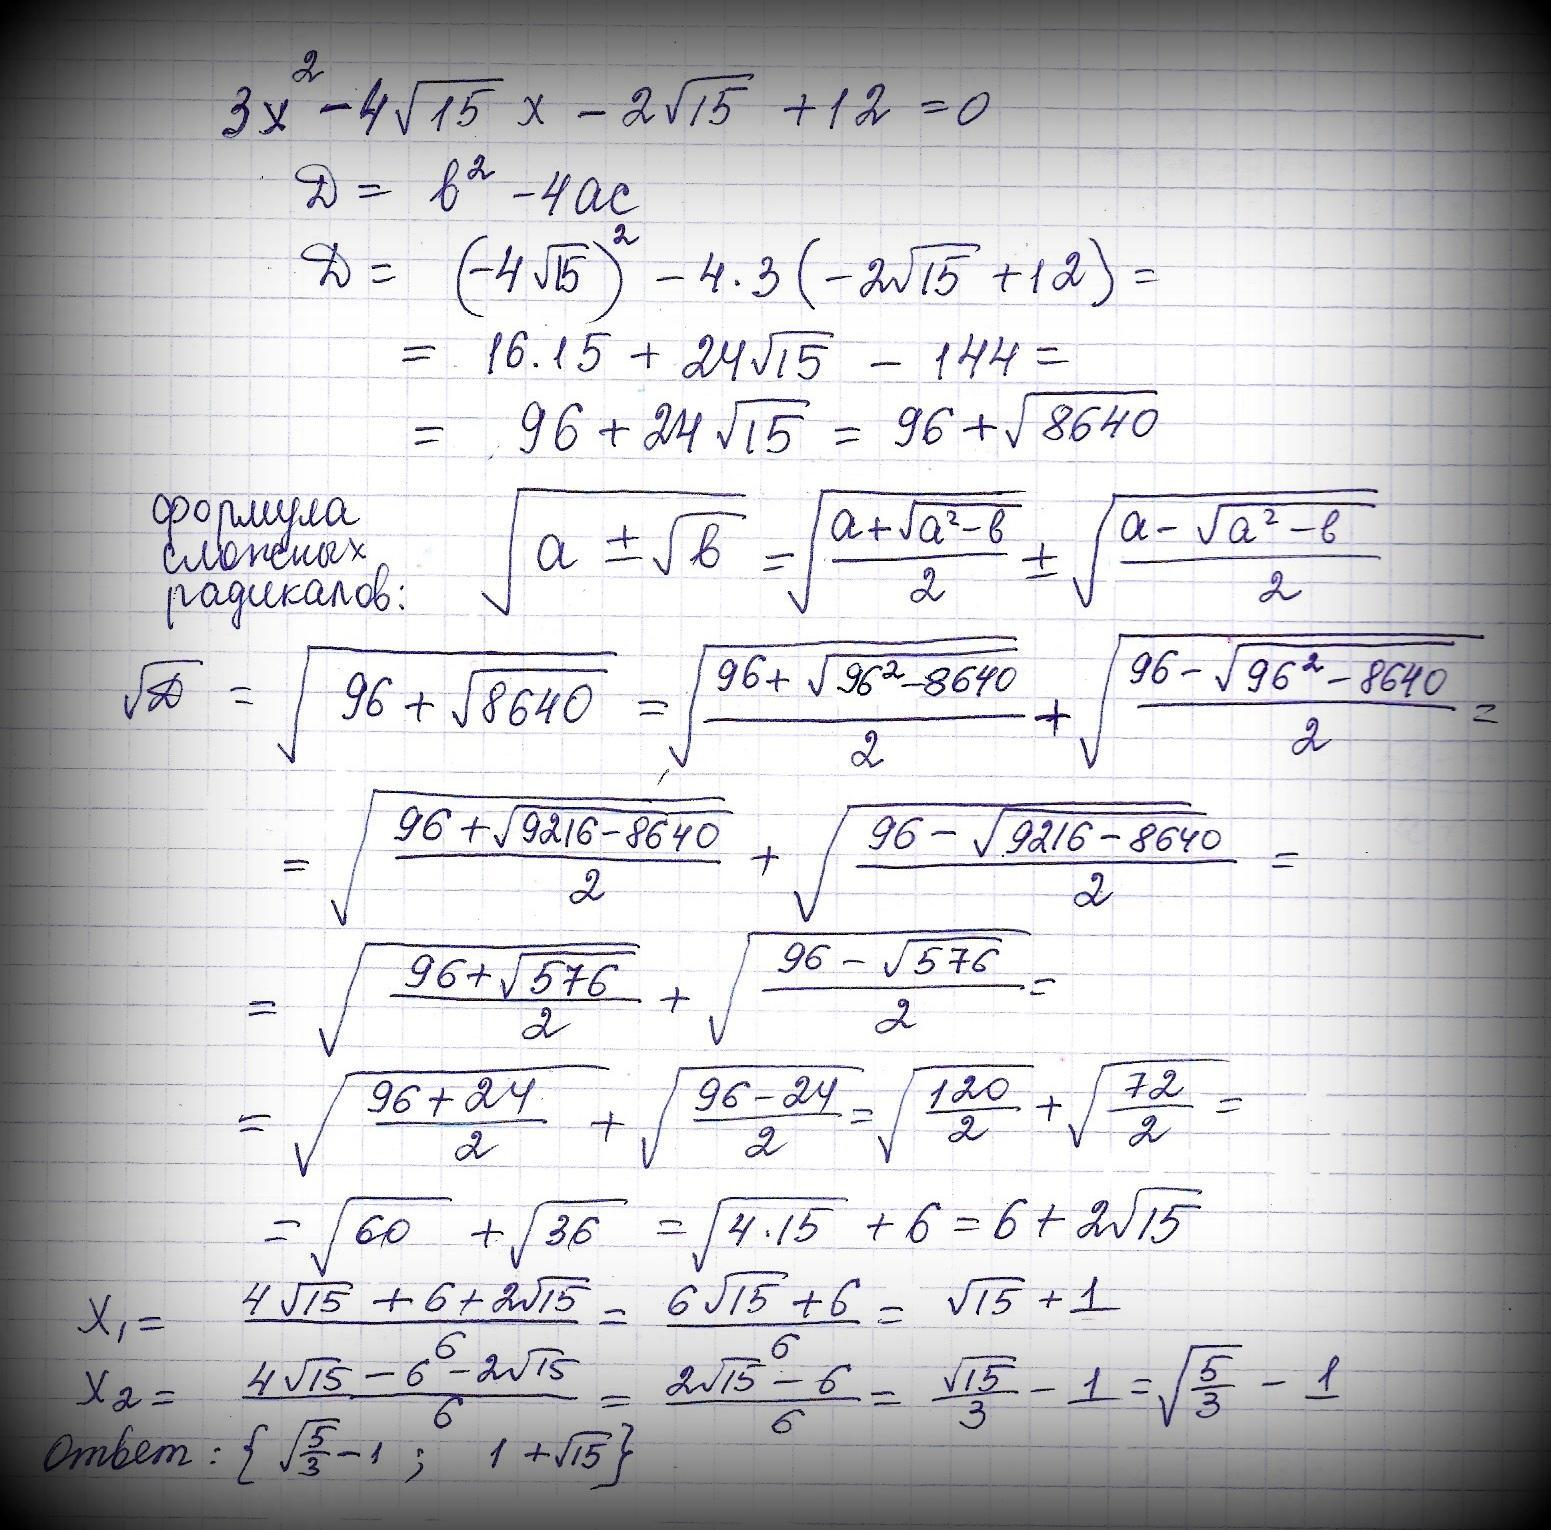 3x² - 4√15 x - 2√15 + 12 = 0
D = b² - 4ac
D = (-4√15)² - 4·3(-2√15 + 12) =
= 16·15 + 24√15 - 144 =
= 96 + 24√15 = 96 + √8640
формула сложных радикалов: √(a ± √b) = √((a + √(a² - b))/2) ± √((a - √(a² - b))/2)
√D = √(96 + √8640) = √((96 + √(96² - 8640))/2) + √((96 - √(96² - 8640))/2) =
= √((96 + √(9216 - 8640))/2) + √((96 - √(9216 - 8640))/2) =
= √((96 + √576)/2) + √((96 - √576)/2) =
= √((96 + 24)/2) + √((96 - 24)/2) = √(120/2) + √(72/2) =
= √60 + √36 = √(4·15) + 6 = 6 + 2√15
x₁ = (4√15 + 6 + 2√15)/6 = (6√15 + 6)/6 = √15 + 1
x₂ = (4√15 - 6 - 2√15)/6 = (2√15 - 6)/6 = √15/3 - 1 = √(5/3) - 1
Ответ: {√(5/3) - 1 ; 1 + √15}